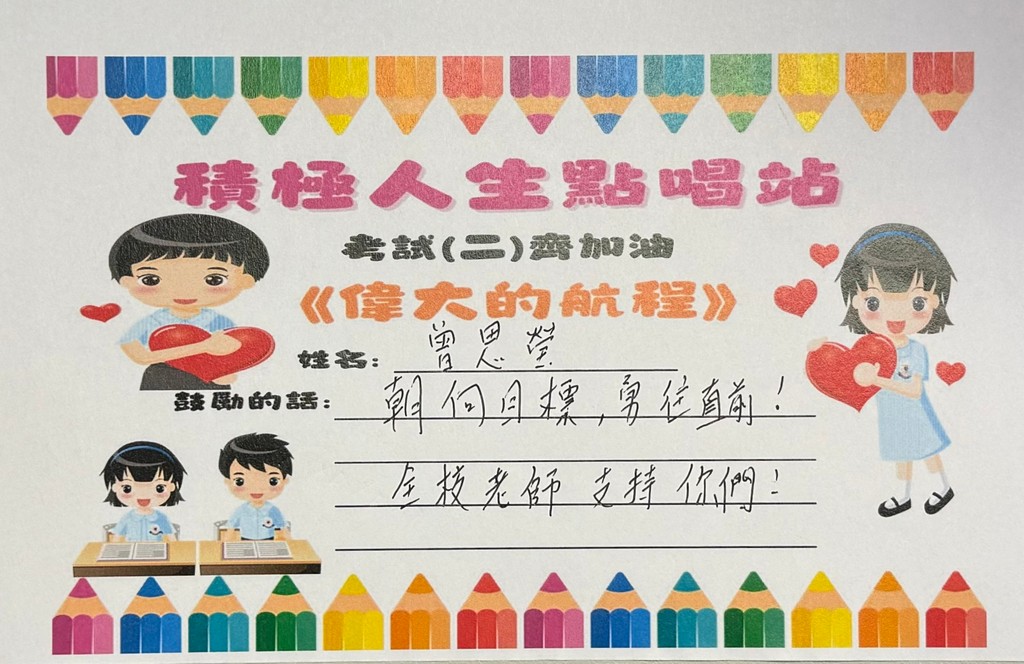 積極人生點唱站
考試(二)齊加油
《偉大的航程》
姓名: 曾思瑩
鼓勵的話: 朝向目標,勇往直前!
全校老師支持你們!